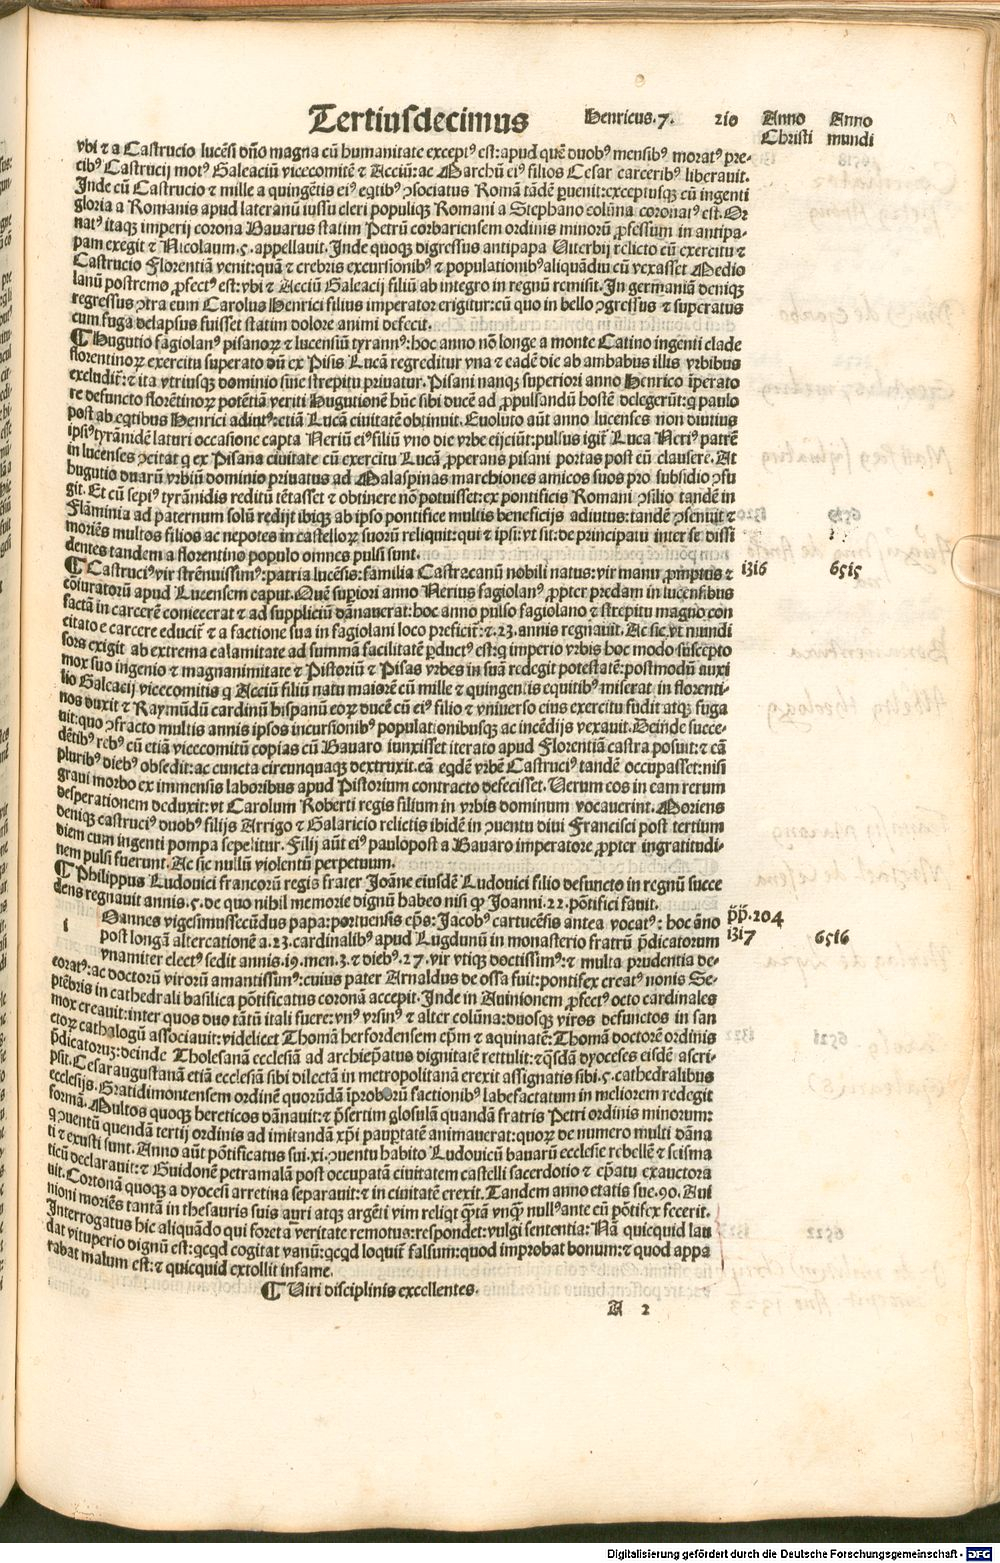 Tertiusdecimus Henricus.7. 210 Anno Christi Anno mundi
vbi ⁊ a Castrucio lucēsi dño magna cū humanitate except⁹ est: apud quē duob⁹ mensib⁹ morat⁹ pre-
cib⁹ Castrucij mot⁹ Galeaciū vicecomitē ⁊ Acciū: ac Marchū ei⁹ filios Cesar carcerib⁹ liberauit.
Inde cū Castrucio ⁊ mille a quingētis ei⁹ eqtib⁹ ↄsociatus Romā tādē ꝑuenit: exceptusqꝫ cū ingenti
gloria a Romanis apud lateranū iussu cleri populiqꝫ Romani a Stephano colūna coronat⁹ est. Or
nat⁹ itaqꝫ imperij corona Bauarus statim Petrū corbariensem ordinis minorū ꝓfessum in antipa-
pam exegit ⁊ Nicolaum.5. appellauit. Inde quoqꝫ digressus antipapa Viterbij relicto cū exercitu ⁊
Castrucio Florentiā venit: quā ⁊ crebris excursionib⁹ ⁊ populationib⁹ aliquādiu cū vexasset Medio
lanū postremo ꝓfect⁹ est: vbi ⁊ Acciū Galeacij filiū ab integro in regnū remisit. In germaniā deniqꝫ
regressus ↄtra eum Carolus Henrici filius imperator erigitur: cū quo in bello ↄgressus ⁊ superatus
cum fuga delapsus fuisset statim dolore animi defecit.
¶ Hugutio fagiolan⁹ pisanoꝝ ⁊ lucensiū tyrann⁹: hoc anno nō longe a monte Catino ingenti clade
florentinoꝝ exercitu superato dū ex Pisis Lucā regreditur vna ⁊ eadē die ab ambabus illis vrbibus
excludit̄: ⁊ ita vtriusqꝫ dominio sine strepitu priuatur. Pisani nanqꝫ superiori anno Henrico īperato
re defuncto florētinoꝝ potētiā veriti Hugutionē hūc sibi ducē ad ꝓpulsandū hostē delegerūt: q paulo
post ab eqtibus Henrici adiut⁹: etiā Lucā ciuitatē obtinuit. Euoluto aūt anno lucenses non diutius
ipsi⁹ tyrānidē laturi occasione capta Neriū ei⁹ filiū vno die vrbe eijciūt: pulsus igit̄ Luca Neri⁹ patrē
in lucenses ↄcitat q ex Pisana ciuitate cū exercitu Lucā ꝓperans pisani portas post eū clausere. At
hugutio duarū vrbiū dominio priuatus ad Malaspinas marchiones amicos suos pro subsidio ↄfu
git. Et cū sepi⁹ tyrānidis reditū tētasset ⁊ obtinere nō potuisset: ex pontificis Romani ↄsilio tandē in
Flāminia ad paternum solū redijt ibiqꝫ ab ipso pontifice multis beneficijs adiutus: tandē ↄsenuit ⁊
moriēs multos filios ac nepotes in castelloꝝ suorū reliquit: qui ⁊ ipsi: vt sit de principatu inter se dissi
dentes tandem a florentino populo omnes pulsi sunt.
¶ Castruci⁹ vir strēnuissim⁹: patria lucēsis: familia Castracanū nobili natus: vir manu ꝓmptus ⁊ 1316 6515
cōiuratorū apud Lucensem caput. Quē supiori anno Nerius fagiolan⁹ ꝓpter predam in lucensibus
factā in carcerē coniecerat ⁊ ad suppliciū dānauerat: hoc anno pulso fagiolano ⁊ strepitu magno con
citato e carcere educit̄ ⁊ a factione sua in fagiolani loco preficit̄: ⁊.23. annis regnauit. Ac sic vt mundi
sors exigit ab extrema calamitate ad summā facilitatē ꝑduct⁹ est: q imperio vrbis hoc modo suscepto
mox suo ingenio ⁊ magnanimitate ⁊ Pistoriū ⁊ Pisas vrbes in suā redegit potestatē: postmodū auxi
lio Galeacij vicecomitis q Acciū filiū natu maiorē cū mille ⁊ quingentis equitib⁹ miserat in florenti-
nos duxit ⁊ Raymūdū cardinū hispanū eoꝝ ducē cū ei⁹ filio ⁊ vniuerso eius exercitu fudit atqꝫ fuga
uit: quo ↄfracto multis annis ipsos incursionib⁹ populationibusqꝫ ac incēdijs vexauit. Deinde succe-
dētib⁹ reb⁹ cū etiā vicecomitū copias cū Bauaro iunxisset iterato apud Florentiā castra posuit: ⁊ eā
plurib⁹ dieb⁹ obsedit: ac cuncta circunquaqꝫ dextruxit. eā eqdē vrbē Castruci⁹ tandē occupasset: nisi
graui morbo ex immensis laboribus apud Pistorium contracto defecisset. Uerum eos in eam rerum
desperationem deduxit: vt Carolum Roberti regis filium in vrbis dominum vocauerint. Moriens
deniqꝫ castruci⁹ duob⁹ filijs Arrigo ⁊ Galaricio relictis ibidē in ↄuentu diui Francisci post tertium
diem cum ingenti pompa sepelitur. Filij aūt ei⁹ paulopost a Bauaro imperatore ꝓpter ingratitudi-
nem pulsi fuerunt. Ac sic nullū violentū perpetuum.
¶ Philippus Ludouici francorū regis frater Joāne eiusdē Ludouici filio defuncto in regnū succe
dens regnauit annis.5. de quo nihil memorie dignū habeo nisi ꝙ Joanni.22. pōtifici fauit.
i Oannes vigesimussecūdus papa: portuensis ep̄s: Jacob⁹ cartucēsis antea vocat⁹: hoc āno p̄p̄.204
post longā altercationē a.23. cardinalib⁹ apud Lugdunū in monasterio fratrū p̄dicatorum 1317 6516
vnamiter elect⁹ sedit annis.19. men.3. ⁊ dieb⁹.27. vir vtiqꝫ doctissim⁹: ⁊ multa prudentia de-
corat⁹: ac doctorū virorū amantissim⁹: cuius pater Arnaldus de ossa fuit: pontifex creat⁹ nonis Se-
ptēbris in cathedrali basilica pōtificatus coronā accepit. Inde in Auinionem ꝓfect⁹ octo cardinales
mox creauit: inter quos duo tātū itali fuere: vn⁹ vrsin⁹ ⁊ alter colūna: duosqꝫ viros defunctos in san
ctoꝝ cathalogū associauit: videlicet Thomā herfordensem ep̄m ⁊ aquinatē: Thomā doctorē ordinis
p̄dicatoruꝫ: deinde Tholesanā ecclesiā ad archiep̄atus dignitatē rettulit: ⁊ qsdā dyoceses eisdē ascri-
psit. Cesaraugustanā etiā ecclesiā sibi dilectā in metropolitanā erexit assignatis sibi.5. cathedralibus
ecclesijs. Gratidimontensem ordinē quorūdā īproborū factionib⁹ labefactatum in meliorem redegit
formā. Multos quoqꝫ hereticos dānauit: ⁊ p̄sertim glosulā quandā fratris Petri ordinis minorum:
q ↄuentū quendā tertij ordinis ad imitandā xp̄i paupertatē animauerat: quoꝝ de numero multi dāna
ti ⁊ exusti sunt. Anno aūt pōtificatus sui.xi. ↄuentu habito Ludouicū bauarū ecclesie rebellē ⁊ scisma
ticū declarauit: ⁊ Guidonē petramalā post occupatā ciuitatem castelli sacerdotio ⁊ ep̄atu exauctora
uit. Cortonā quoqꝫ a dyocesi arretina separauit: ⁊ in ciuitatē erexit. Tandem anno etatis sue.90. Aui
nioni moriēs tantā in thesauris suis auri atqꝫ argēti vim reliqt q̄tā vnq̄ null⁹ ante eū pōtifex fecerit.
Interrogatus hic aliquādo qui foret a veritate remotus: respondet: vulgi sententia: Nā quicquid lau
dat vituperio dignū est: qcqd cogitat vanū: qcqd loquit̄ falsum: quod improbat bonum: ⁊ quod appa
rabat malum est: ⁊ quicquid extollit infame.
¶ Viri disciplinis excellentes.
A 2
Digitalisierung gefördert durch die Deutsche Forschungsgemeinschaft - DFG